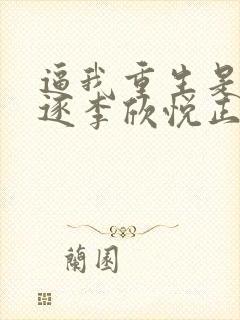 逼我重生是
逐李欣悦正
蘭園